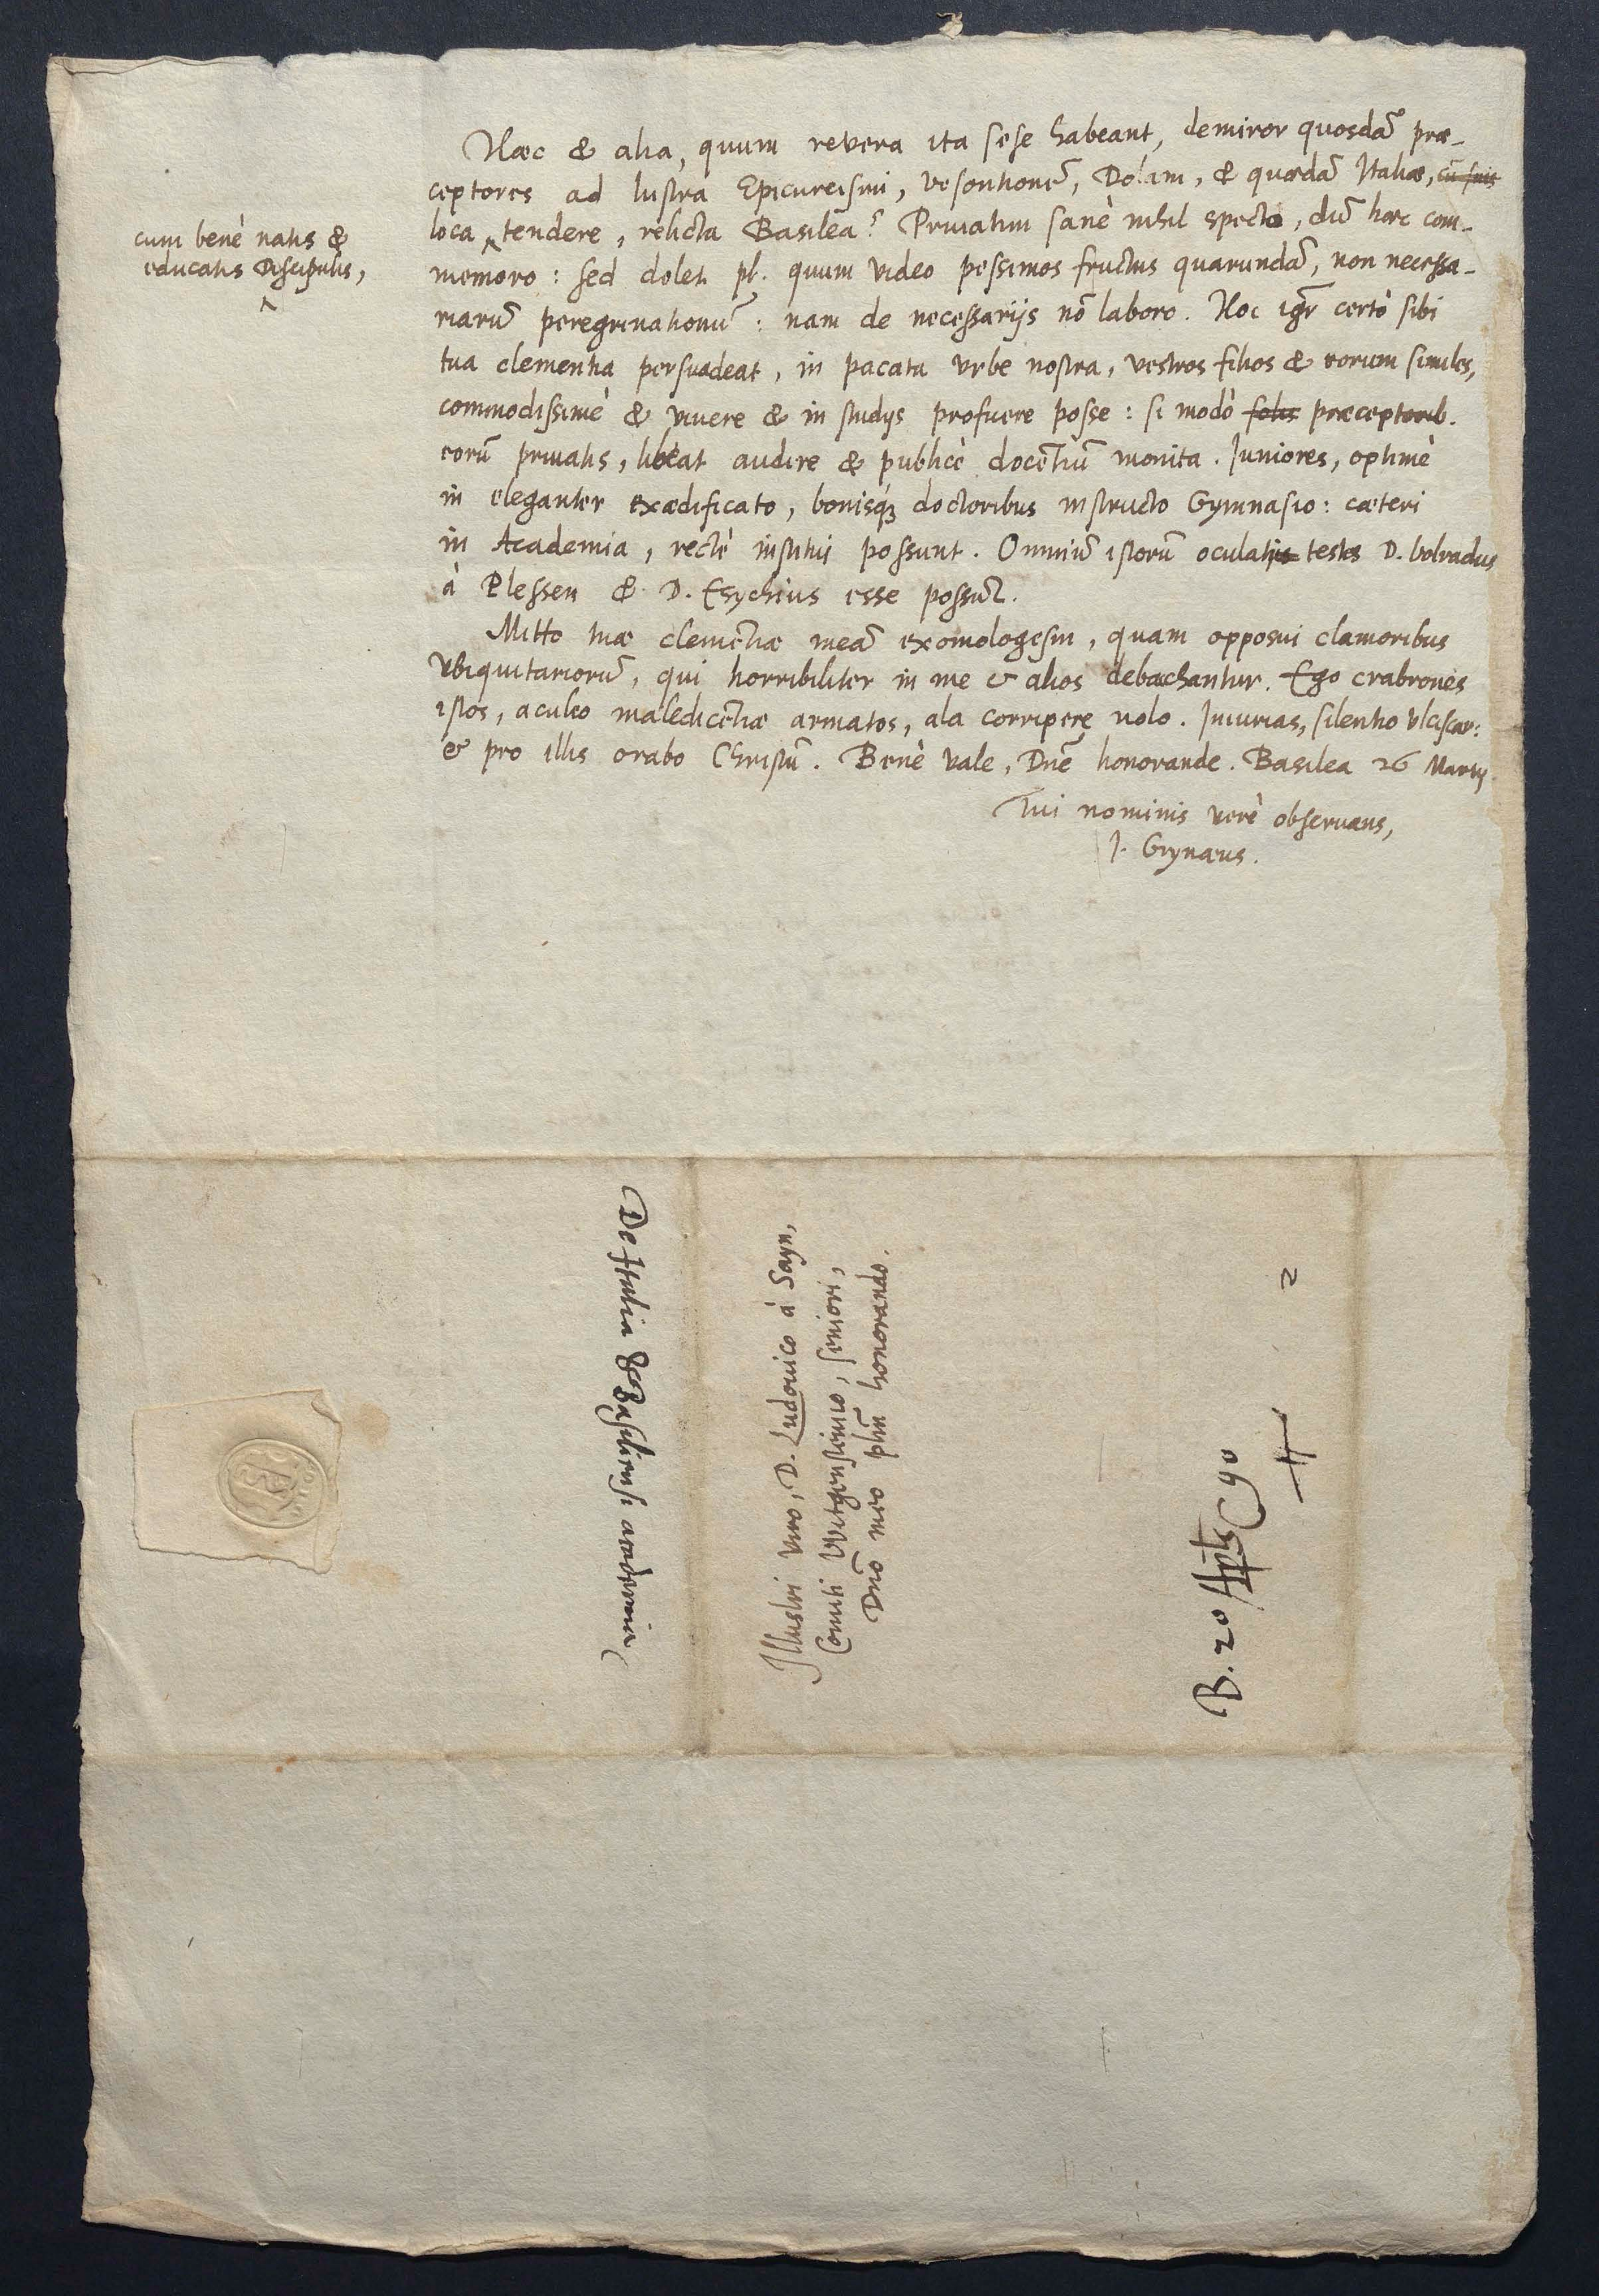 Haec & alia, quum revera ita sese habeant, demiror quosdā prae-
ceptores ad lustra Epicureismi, Vesontionē, Dolam, & quaedā Italiae, cū suis
loca ^ tendere, relicta Basilea? Priuatim sanè nihil specto, dū haec com-
cum benè natis &
educatis Discipulis,
memoro: sed dolet pl. quum video pessimos fructus quarundā, non necessa-
riarū peregrinationū: nam de necessarijs nō laboro. Hoc igr certò sibi
tua clementia persuadeat, in pacata vrbe nostra, vestros filios & eorum similes,
commodissimè & viuere & in studijs proficere posse: si modò solis praeceptorib.
eorū priuatis, libeat audire & publicè docentiū monita. Juniores, optimè
in eleganter exaedificato, bonisq; doctoribus instructo Gymnasio: caeteri
in Academia, rectè institui possunt. Omniū istorū oculati testes D. Volradus
à Plessen & D. Esychius esse possūt.
Mitto tuae clemētiae meā exomologesin, quam opposui clamoribus
Vbiquitariorū, qui horribiliter in me & alios debachantur. Ego crabrones
istos, aculeo maledicētiae armatos, ala corripere nolo. Iniurias, silentio vlciscar:
& pro illis orabo Christū. Benè vale, Dnē honorande. Basilea 26 Martij
Tui nominis verè obseruans,
J. Grynaeus.
De Italia & Basiliensi academia
Illustri viro, D. Ludouico à Sayn,
Comiti Witgensteinio, seniori,
Dnō meo plm̄ honorando.
B. 20 Aplis 90
2